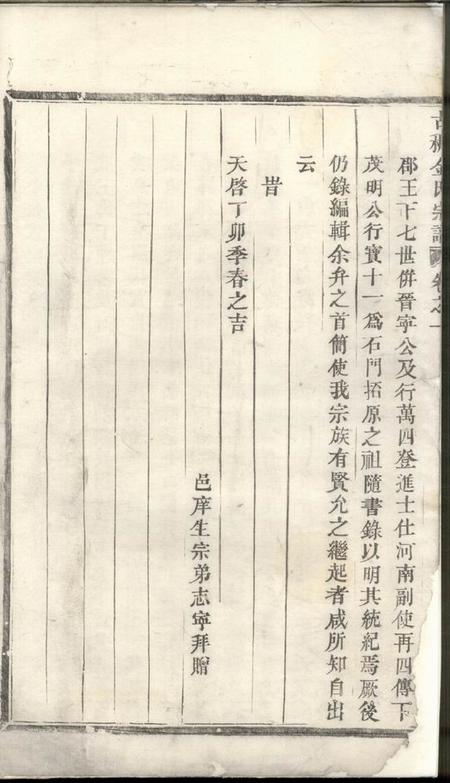 金氏宗譜 卷之一
郡王下七世併晉寧公及行萬四登進士仕河南副使再四傳下
茂明公行寶十一爲石門拓原之祖隨書錄以明其統紀焉厥後
仍錄編輯余弁之首簡使我宗族有賢允之繼起者咸所知自出
云
旹
天啓丁卯季春之吉
邑庠生宗弟志寧拜贈